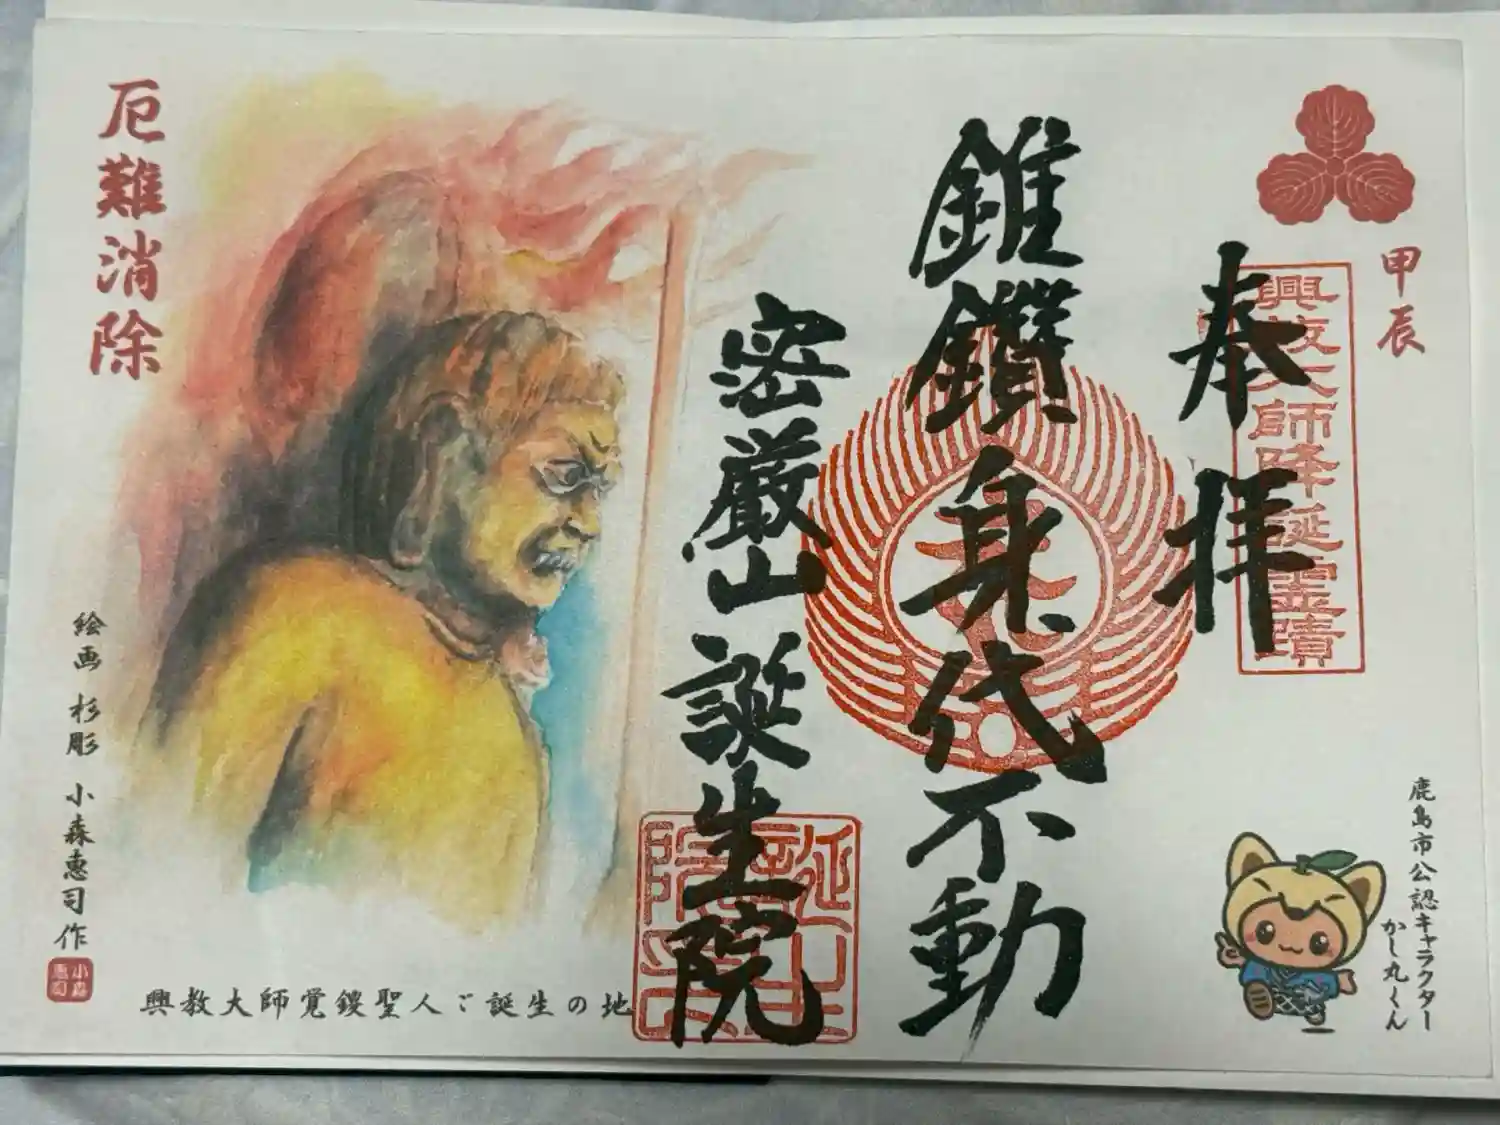 甲辰
奉拝
興教大師降誕霊蹟
錐鑽身代不動
密厳山誕生院
誕生院印
厄難消除
絵画 杉彫 小森惠司作
小森惠司
興教大師覚鑁聖人ご誕生の地
鹿島市公認キャラクター
かし丸くん